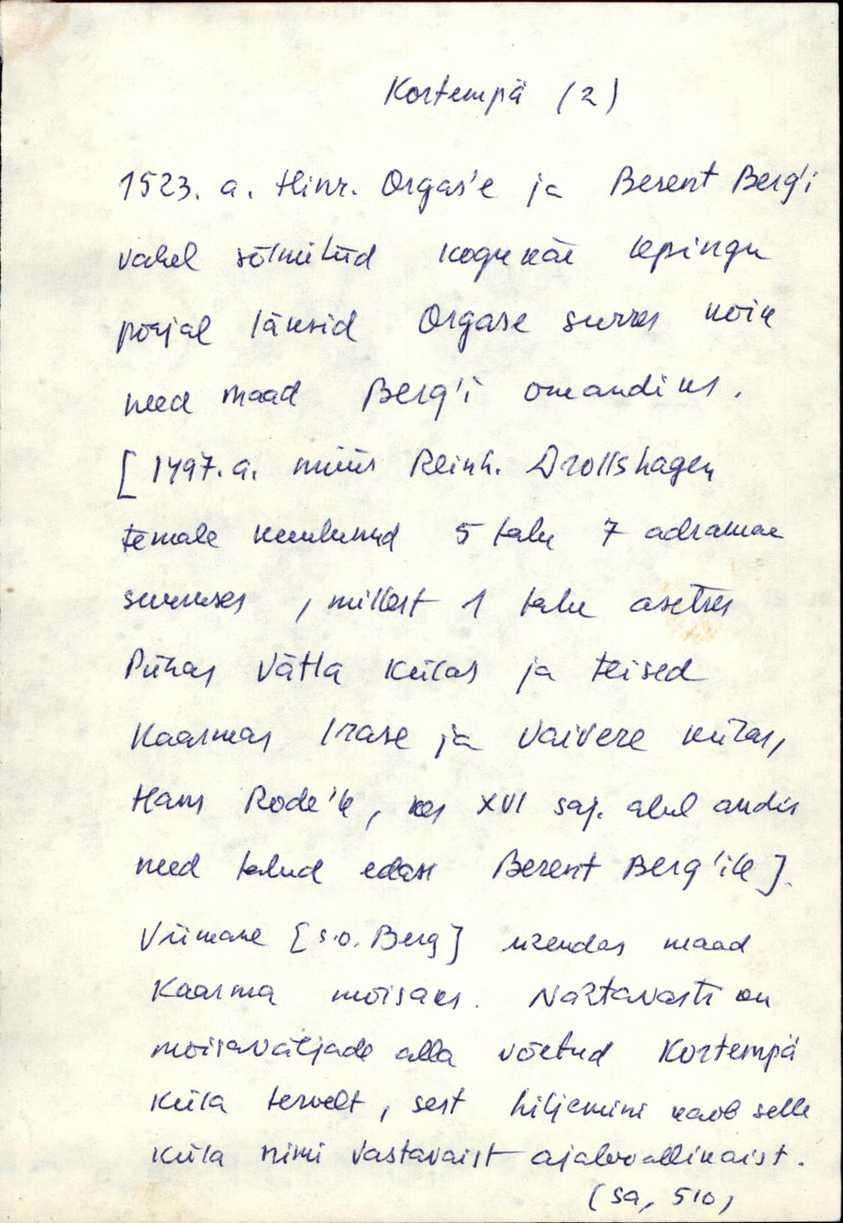 Kortempä (2)
1523. a. Hinr. Orgas'e ja Berent Berg'i
vahel sõlmitud kogukäe lepingu
põhjal läksid Orgase surres kõik
need maad Berg'i omandiks.
[1497. a. müüs Reinh. Drollshagen
temale kuulunud 5 talu 7 adramaa
suuruses, millest 1 talu asetses
Pühas Vätta külas ja teised
Kaarmas Irase ja Vaivere külas,
Hans Rode'le, kes XVI saj. alul andis
need talud edasi Berent Berg'ile].
Viimane [s.o. Berg] ümendas maad
Kaarma mõisaks. Nähtavasti on
mõisaväljade alla võetud Kortempä
küla tervelt, sest hiljemini kaob selle
küla nimi vastavaist ajalooallikaist.
(Sa, 510)